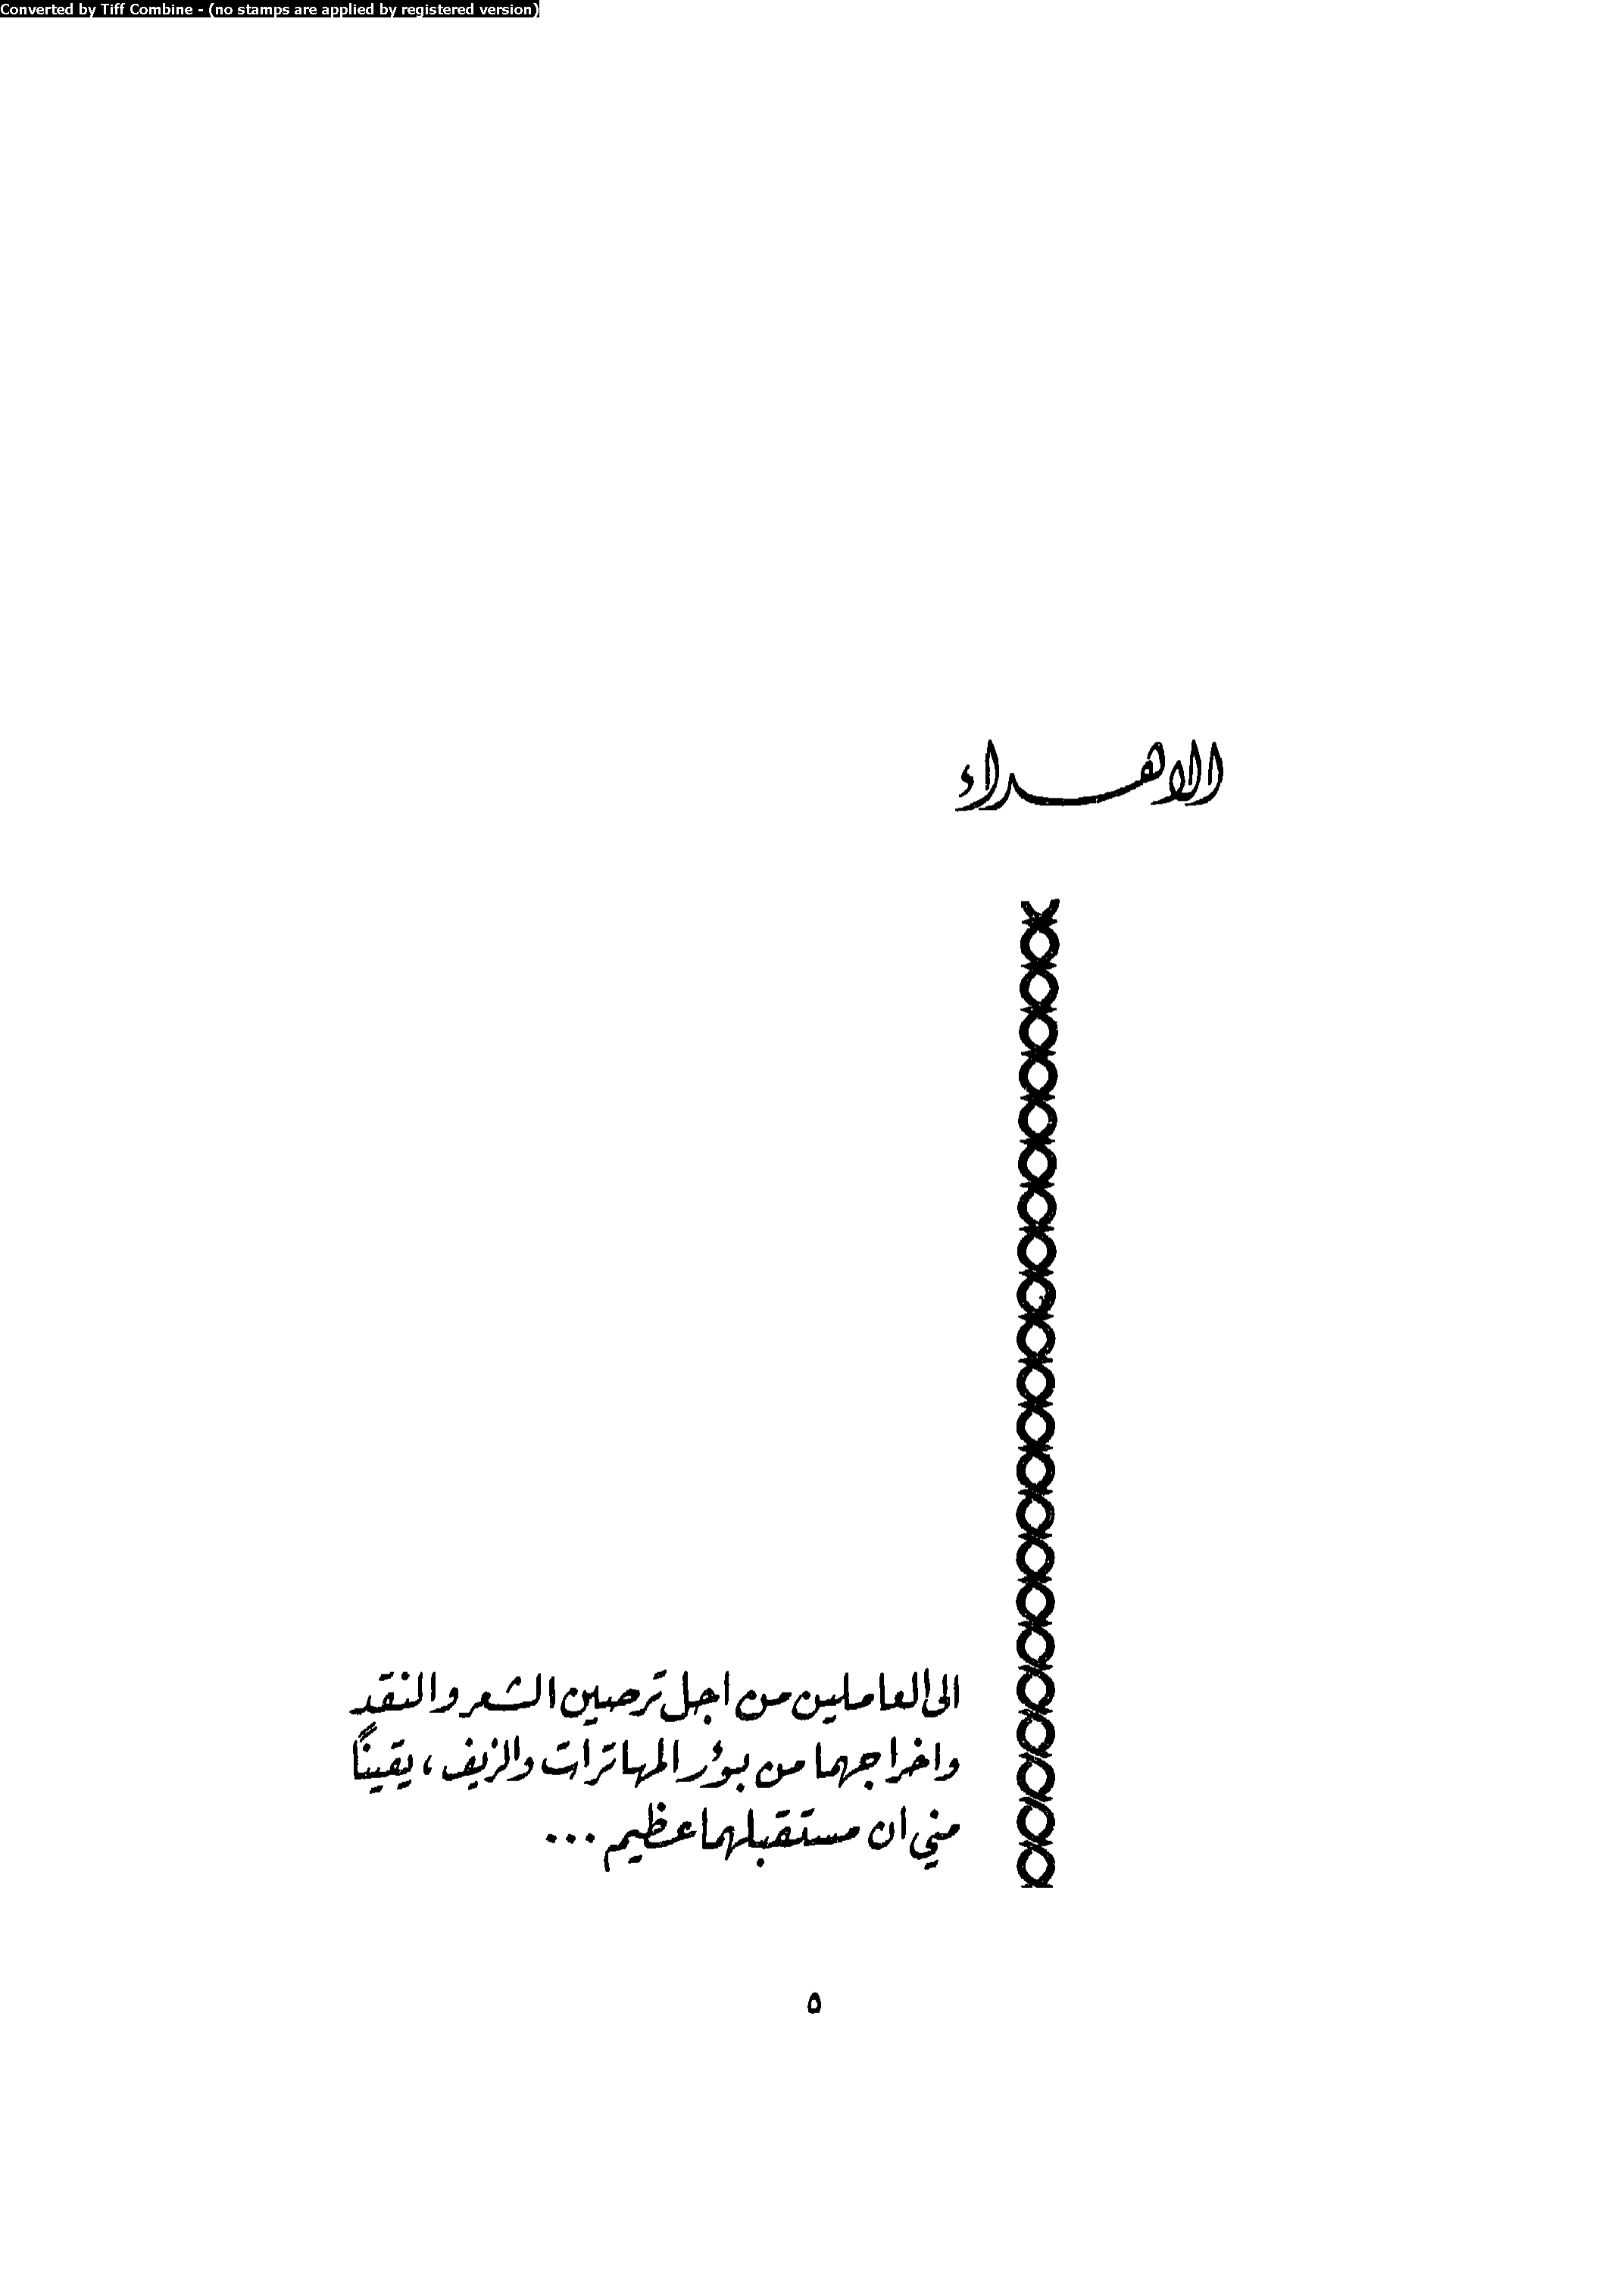 Converted by Tiff Combine - (no stamps are applied by registered version)
الاهداء
الى العاملين من اجل ترصين الشعر والنقد
واخراجهما من بؤر المهاترات والزيف ، يقينًا
مني ان مستقبلهما عظيم ...
٥